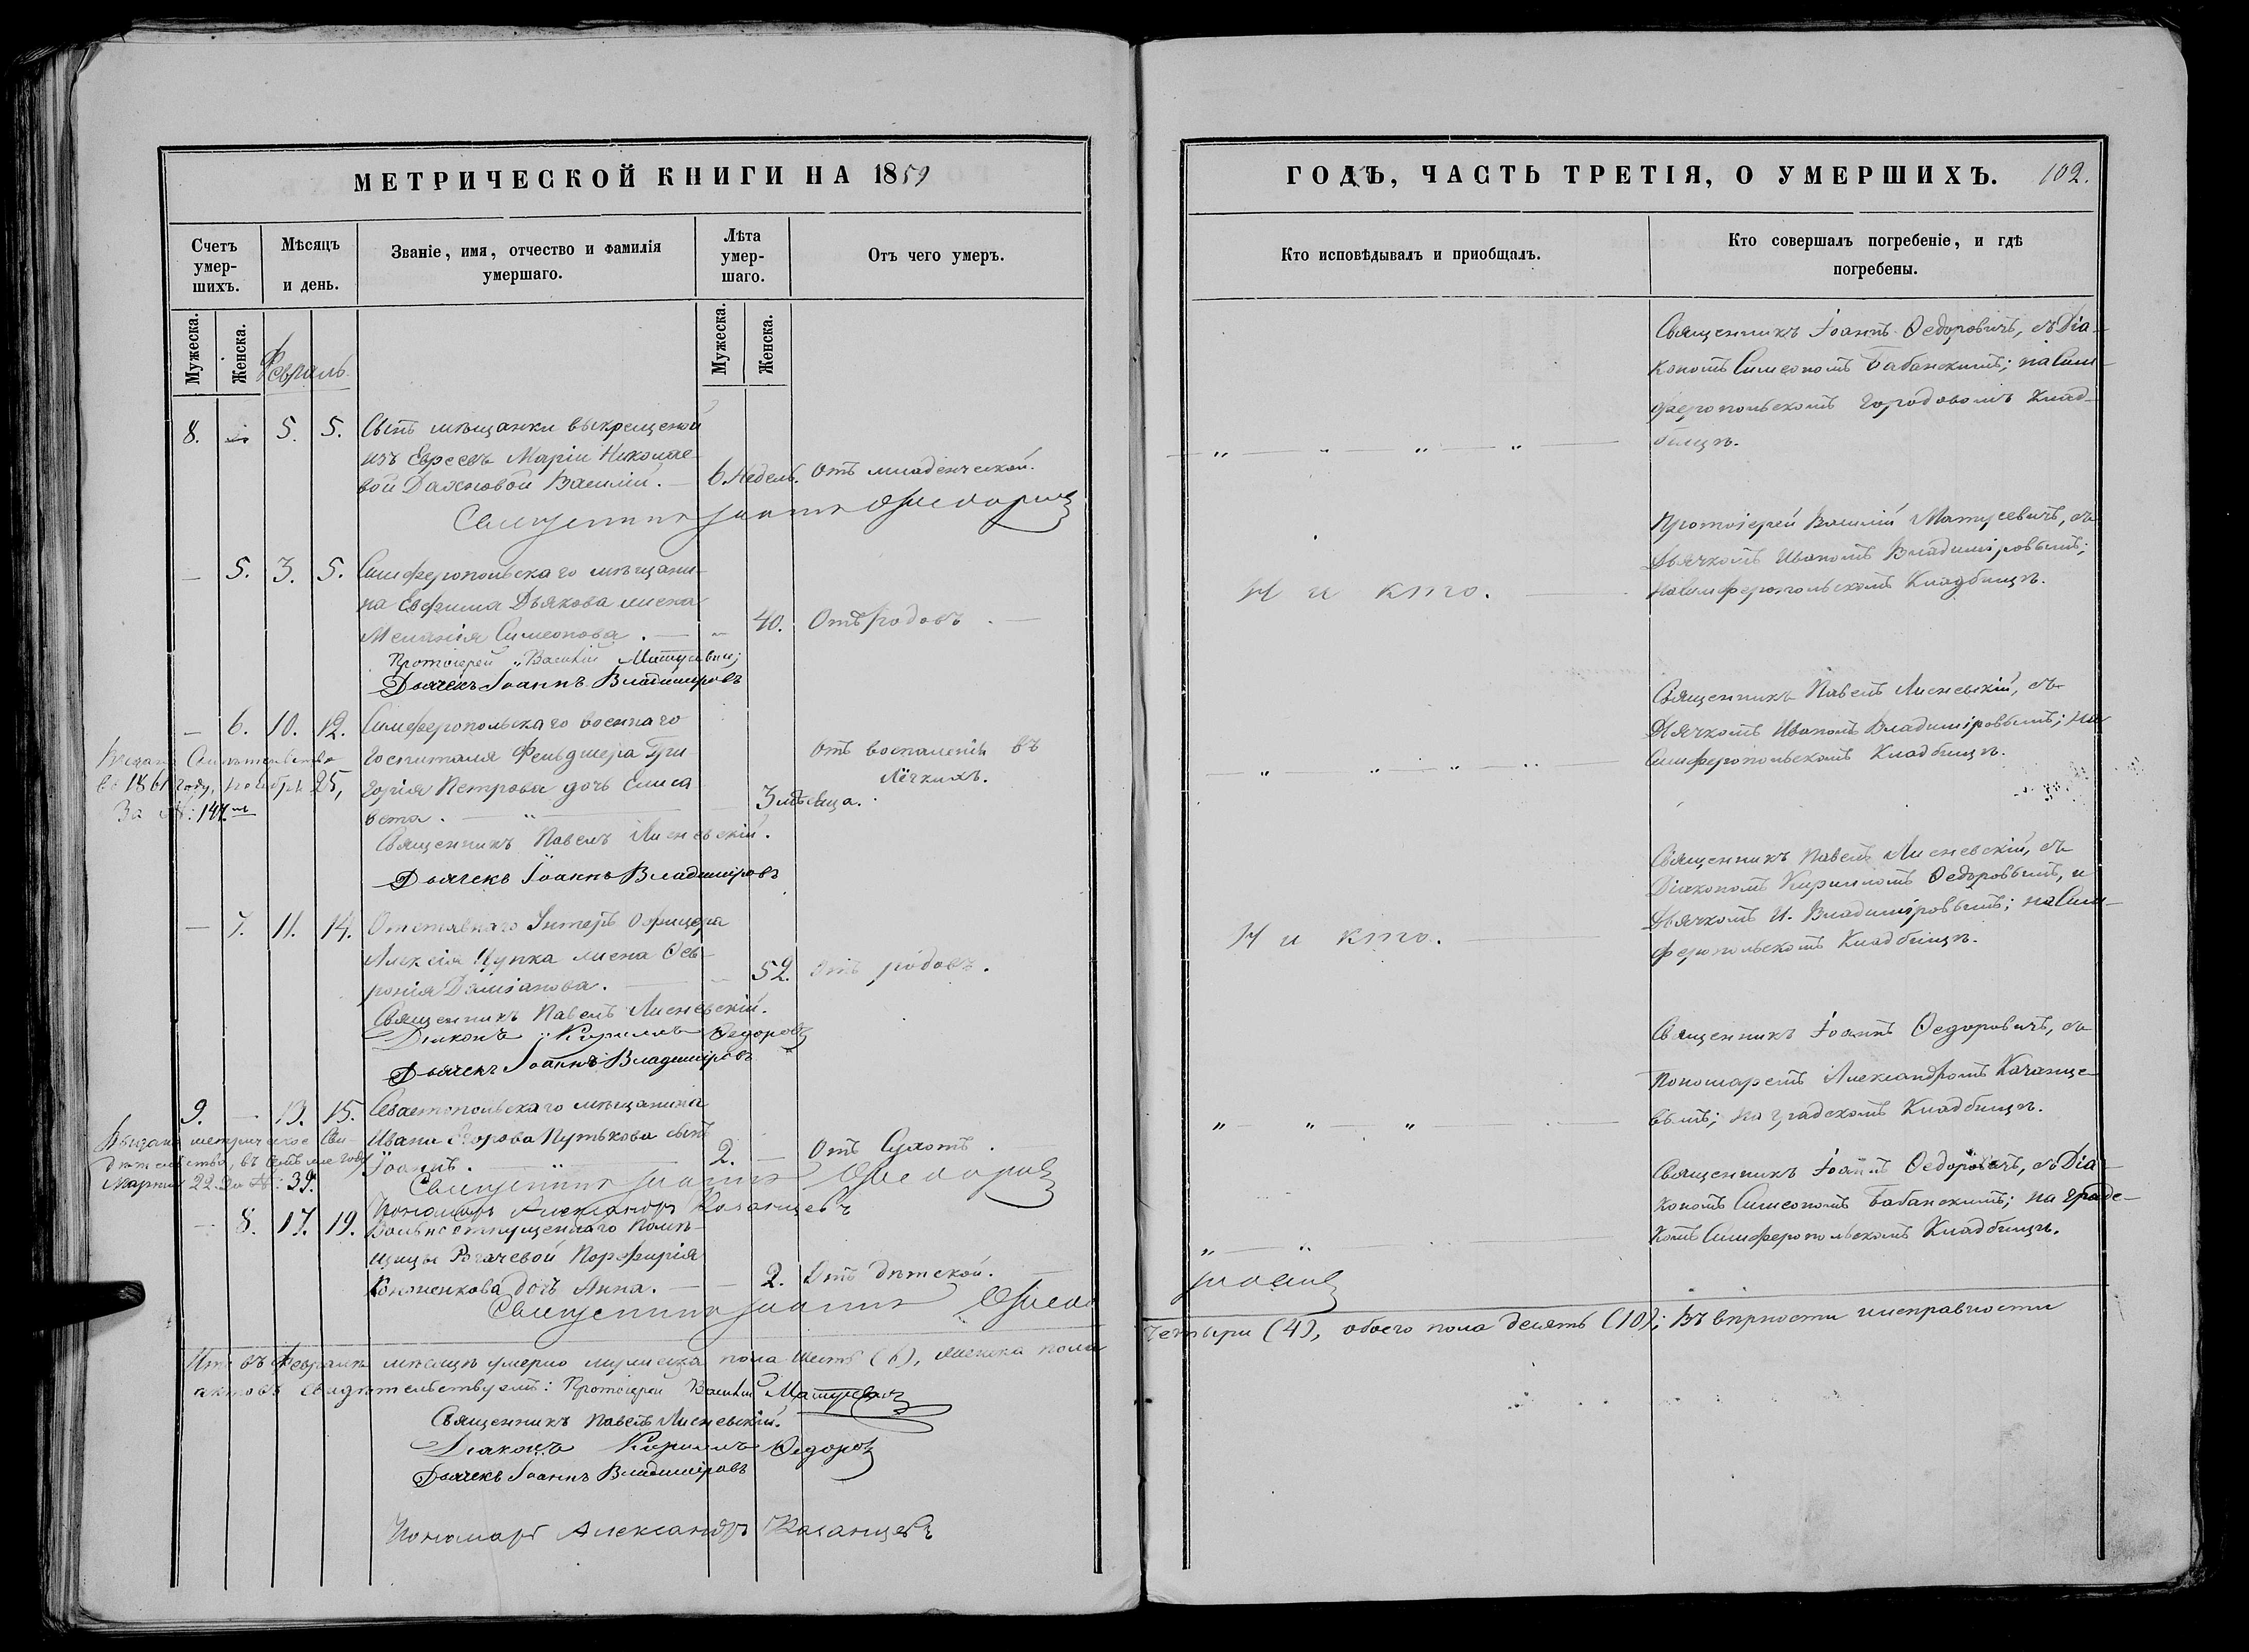 МЕТРИЧЕСКОЙ КНИГИ НА 1859
Счетъ умер-
шихъ.
Мѣсяцъ
и день.
Званіе, имя, отчество и фамилія
умершаго.
Лѣта
умер-
шаго.
Отъ чего умеръ.
Мужеска.
Женска.
Февраль
Мужеска.
Женска.
8. 5. 5. Сынъ мѣщанки выкрещеной
изъ Евреевъ Маріи Николае-
вой Василій. — 6. Недель. Отъ младенческой.
Священникъ Іоаннъ Ѳеодоровичъ
— 5. 3. 5. Симферопольскаго мѣщани-
на Евфима Дьякова жена
Меланія Симеонова. — 40. Отъ родовъ. —
Протоіерей Василій Матусевичъ;
Дьячекъ Іоаннъ Владиміровъ
— 6. 10. 12. Симферопольскаго военнаго
госпиталя Фельдшера Гри-
горія Петрова дочь Елиса
вета. — 3 мѣсяца. Отъ воспаленія въ
лёгкихъ.
Священникъ Павелъ Лисневскій.
Дьячекъ Іоаннъ Владиміровъ
Выдано Свидѣтельство
въ 1861 году, Ноября 25,
За №: 144.
— 7. 11. 14. Отставнаго Унтеръ Офицера
Алексія Цупка жена Ѳев-
ронія Даміанова. — 52. Отъ родовъ.
Священникъ Павелъ Лисневскій.
Діаконъ Кириллъ Ѳедоровъ
Дьячекъ Іоаннъ Владиміровъ
9. — 13. 15. Севастопольскаго мѣщанина
Ивана Егорова Путькова сынъ
Іоаннъ. — 2. — Отъ Сухотъ.
Священникъ Іоаннъ Ѳеодоровичъ
Пономарь Александръ Казанцевъ
Выдано метрическое Сви-
дѣтельство, въ семъ же году
Марта 22. За №: 39.
— 8. 17. 19. Вольноотпущеннаго Помѣ-
щицы Рогачевой Порфирія
дочь Анна. — 2. Отъ дѣтской.
Священникъ Іоаннъ Ѳеодо
Итого въ Февралѣ мѣсяцѣ умерло мужеска пола шесть (6), женска пола
актовъ свидѣтельствуемъ: Протоіерей Василій Матусевичъ
Священникъ Павелъ Лисневскій.
Діаконъ Кириллъ Ѳедоровъ
Дьячекъ Іоаннъ Владиміровъ
Пономарь Александръ Казанцевъ
ГОДЪ, ЧАСТЬ ТРЕТІЯ, О УМЕРШИХЪ. 102.
Кто исповѣдывалъ и приобщалъ.
Кто совершалъ погребеніе, и гдѣ
погребены.
Священникъ Іоаннъ Ѳедоровичъ, съ Діа-
кономъ Симеономъ Бабанскимъ; на Сим-
феропольскомъ городовомъ Клад-
бищѣ.
Никто.
Протоіерей Василій Матусевичъ, съ
Дьячкомъ Иваномъ Владиміровымъ;
на Симферопольскомъ Кладбищѣ.
Священникъ Павелъ Лисневскій, съ
Дьячкомъ Иваномъ Владиміровымъ; на
Симферопольскомъ Кладбищѣ.
Никто.
Священникъ Павелъ Лисневскій, съ
Діакономъ Кирилломъ Ѳедоровымъ, и
Дьячкомъ И. Владиміровымъ; на Сим-
феропольскомъ Кладбищѣ.
Священникъ Іоаннъ Ѳедоровичъ, съ
Пономаремъ Александромъ Казанце-
вымъ; на градскомъ Кладбищѣ.
Священникъ Іоаннъ Ѳедоровичъ, съ Діа-
кономъ Симеономъ Бабанскимъ; на градс-
комъ Симферопольскомъ Кладбищѣ.
четыри (4), обоего пола десять (10); Въ вѣрности и исправности